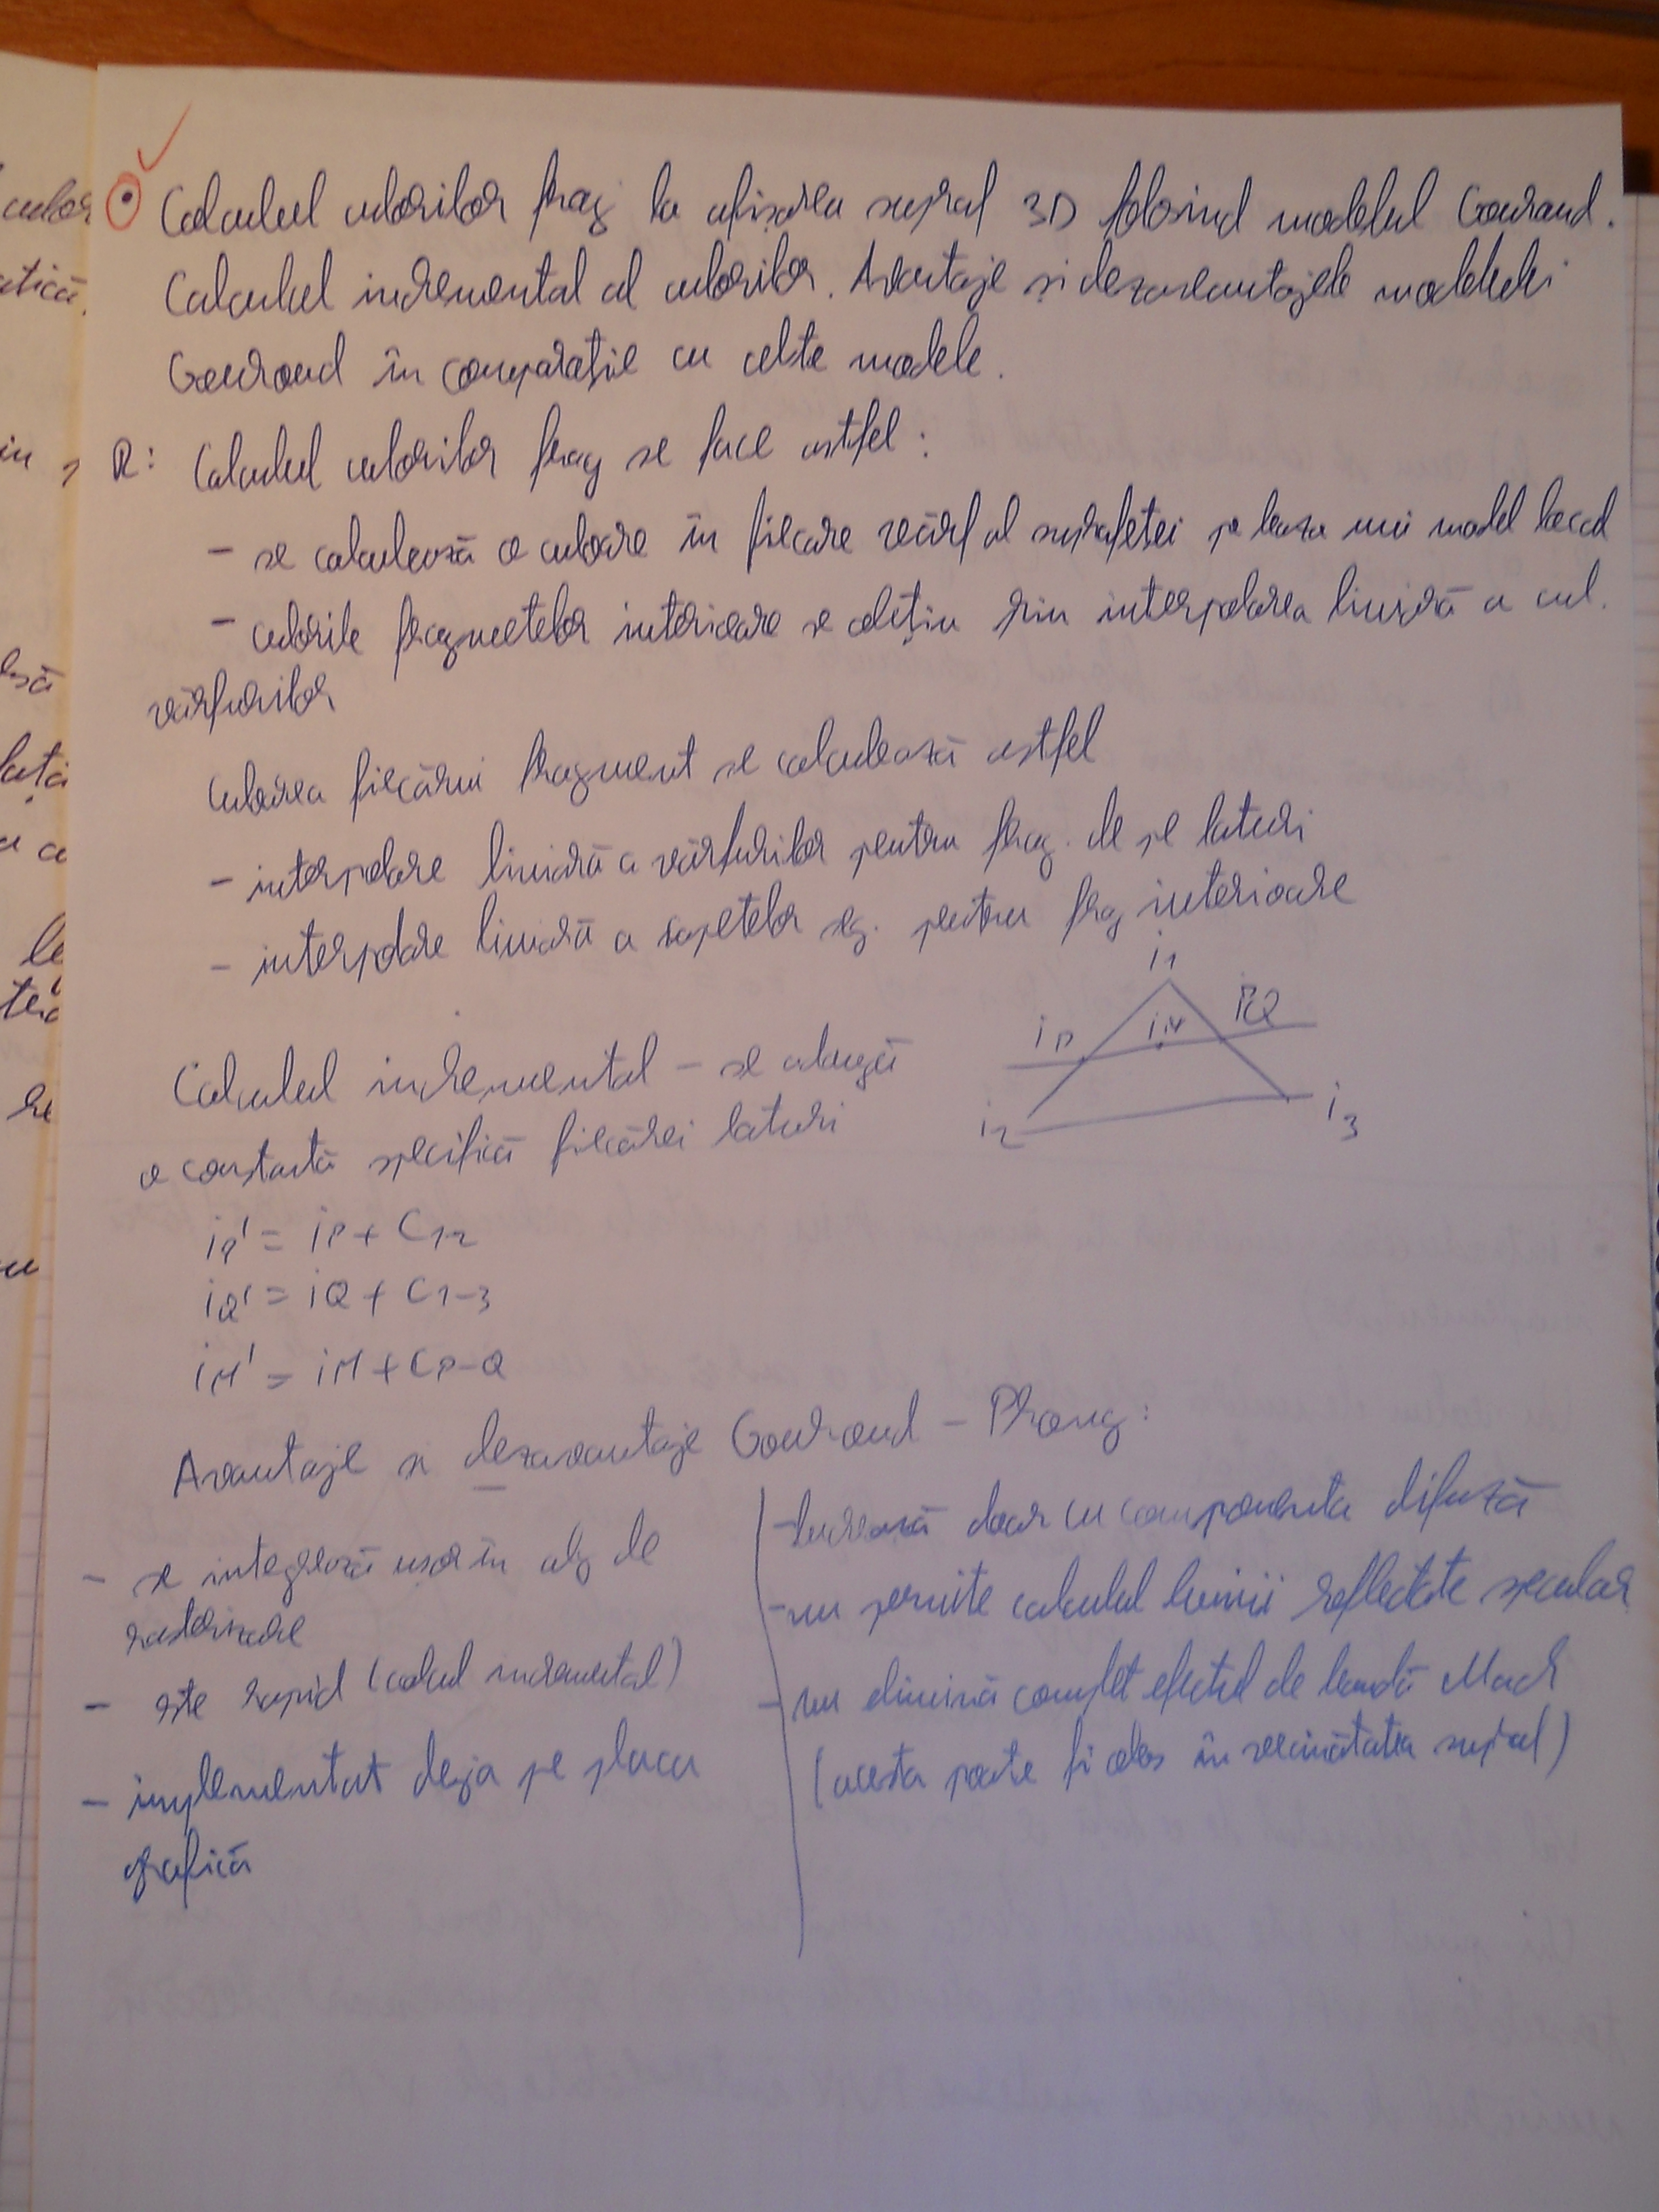 Calculul culorilor frag la afișarea supraf 3D folosind modelul Gouraud.
Calculul incremental al culorilor. Avantaje și dezavantajele modelului
Gouraud în comparație cu celste modele.
R: Calculul culorilor frag se face astfel:
- se calculează o culoare în fiecare vârf al suprafeței pe baza unui model local
- culorile fragmetelor interioare se obțin prin interpolarea liniară a cul.
vârfurilor
Culoarea fiecărui fragment se calculează astfel
- interpolare liniară a vârfurilor pentru frag. de pe laturi
- interpolare liniară a capetelor seg. pentru frag interioare
i1
iP iM iQ
i2 i3
Calculul incremental - se adaugă
o constantă specifică fiecărei laturi
iP' = iP + C1-2
iQ' = iQ + C1-3
iM' = iM + CP-Q
Avantaje și dezavantaje Gouraud - Phong:
- se integrează ușor în alg de
rasterizare
- este rapid (calcul incremental)
- implementat deja pe placa
grafică
- lucrează doar cu componenta difuză
- nu permite calculul luminii reflectate specular
- nu elimină complet efectul de bandă Mach
(acesta poate fi obs în vecinătatea supraf)
culor
atică.
in